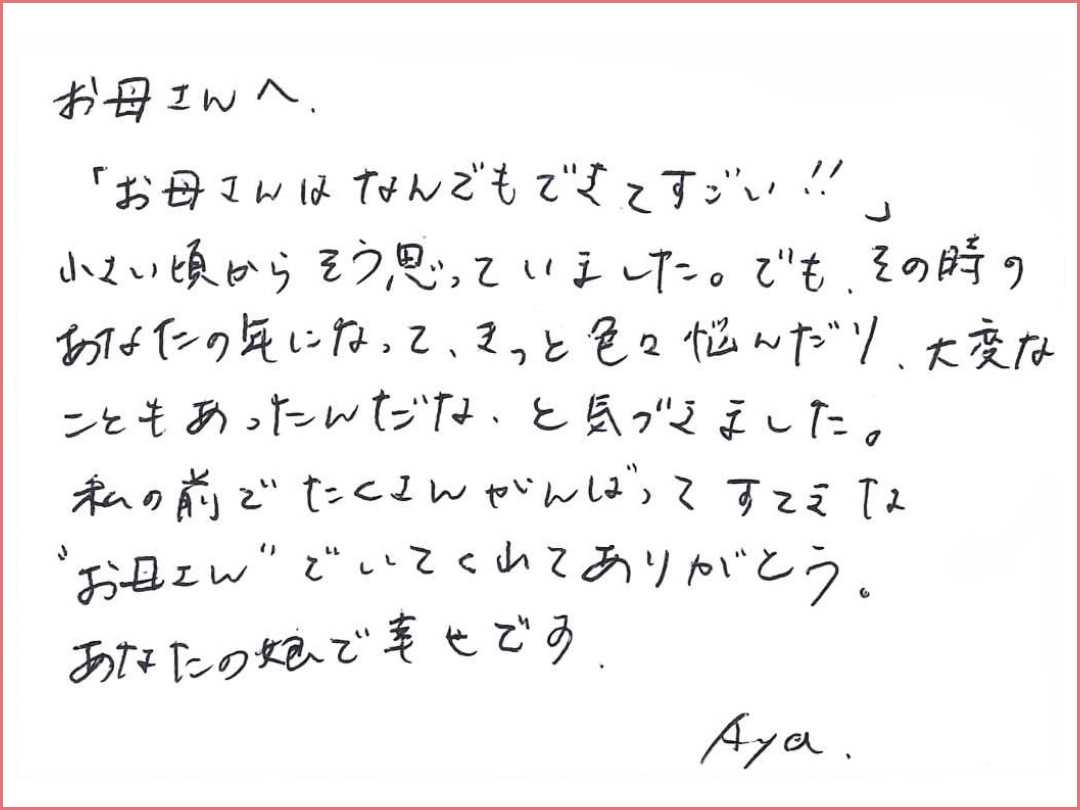 お母さんへ.
「お母さんはなんでもできてすごい!!」
小さい頃からそう思っていました。でも、その時の
あなたの年になって、きっと色々悩んだり、大変な
こともあったんだな、と気づきました。
私の前でたくさんがんばってすてきな
"お母さん"でいてくれてありがとう。
あなたの娘で幸せです.
Aya.